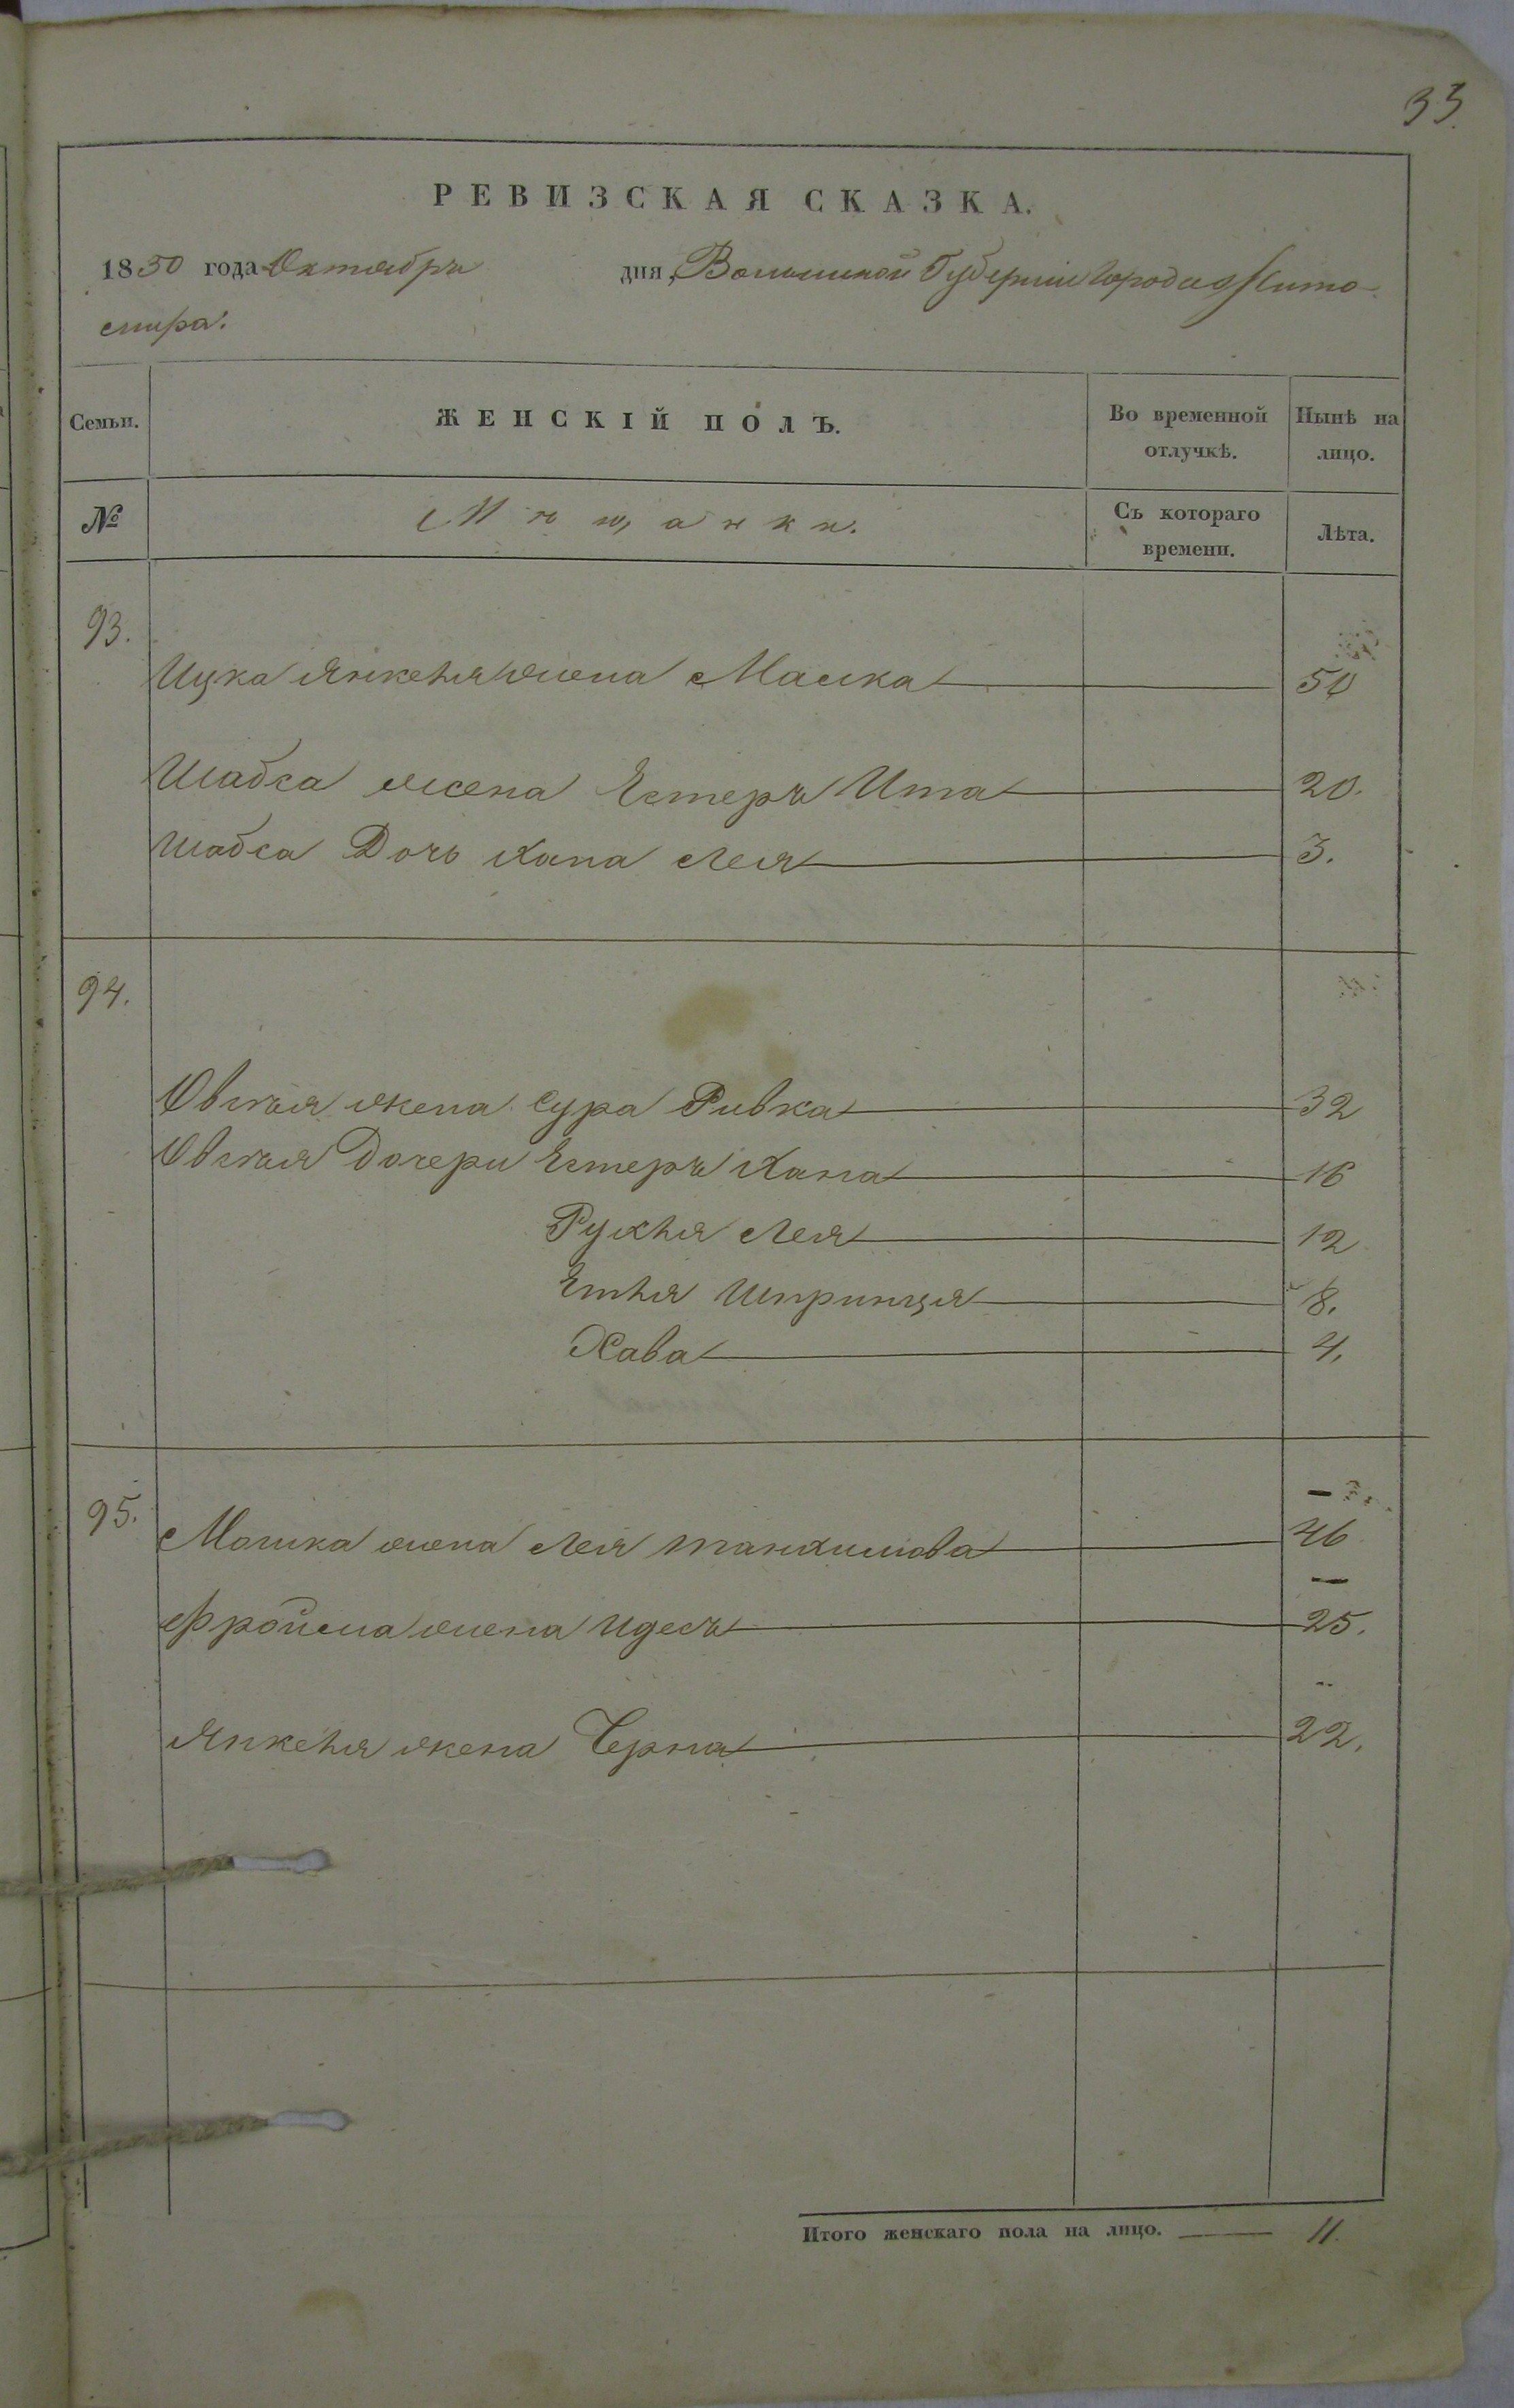 33.
РЕВИЗСКАЯ СКАЗКА.
1850 года Октября дня, Волынской Губернии Города Жито-
мира.
Семьи. ЖЕНСКІЙ ПОЛЪ. Во временной отлучкѣ. Нынѣ на лицо.
№ Мѣщанки. Съ котораго времени. Лѣта.
93.
Ицка Янкеля жена Маська 50
Шабса жена Естеръ Ита 20.
Шабса Дочь Хана Лея 3.
94.
Овшея жена Сура Ривка 32
Овшея Дочери Естеръ Хана 16
Рухля Лея 12
Етля Шпринця 8.
Хава 4.
95.
Мошка жена Лея Танхимова 46
Фройма жена Идесъ 25.
Янкеля жена Черна 22.
Итого женскаго пола на лицо. 11.